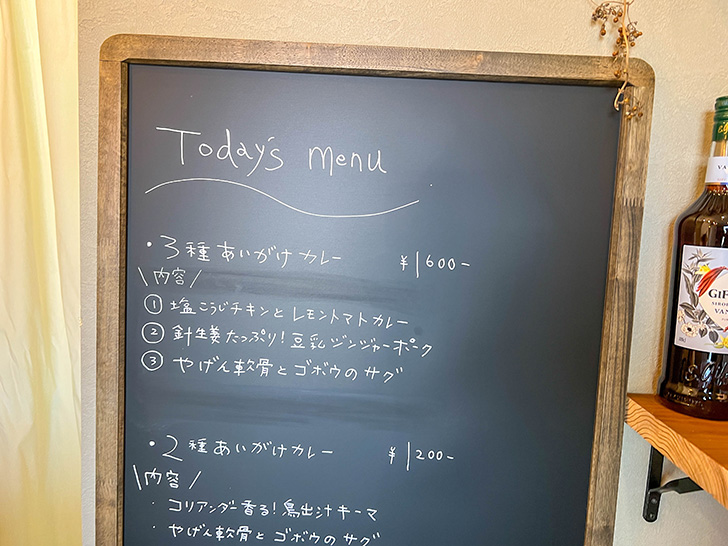 Today's menu
・3種あいがけカレー ¥1600-
\内容/
① 塩こうじチキンとレモントマトカレー
② 針生姜たっぷり!豆乳ジンジャーポーク
③ やげん軟骨とゴボウのサグ
・2種あいがけカレー ¥1200-
\内容/
・コリアンダー香る!鳥出汁キーマ
・やげん軟骨とゴボウのサグ